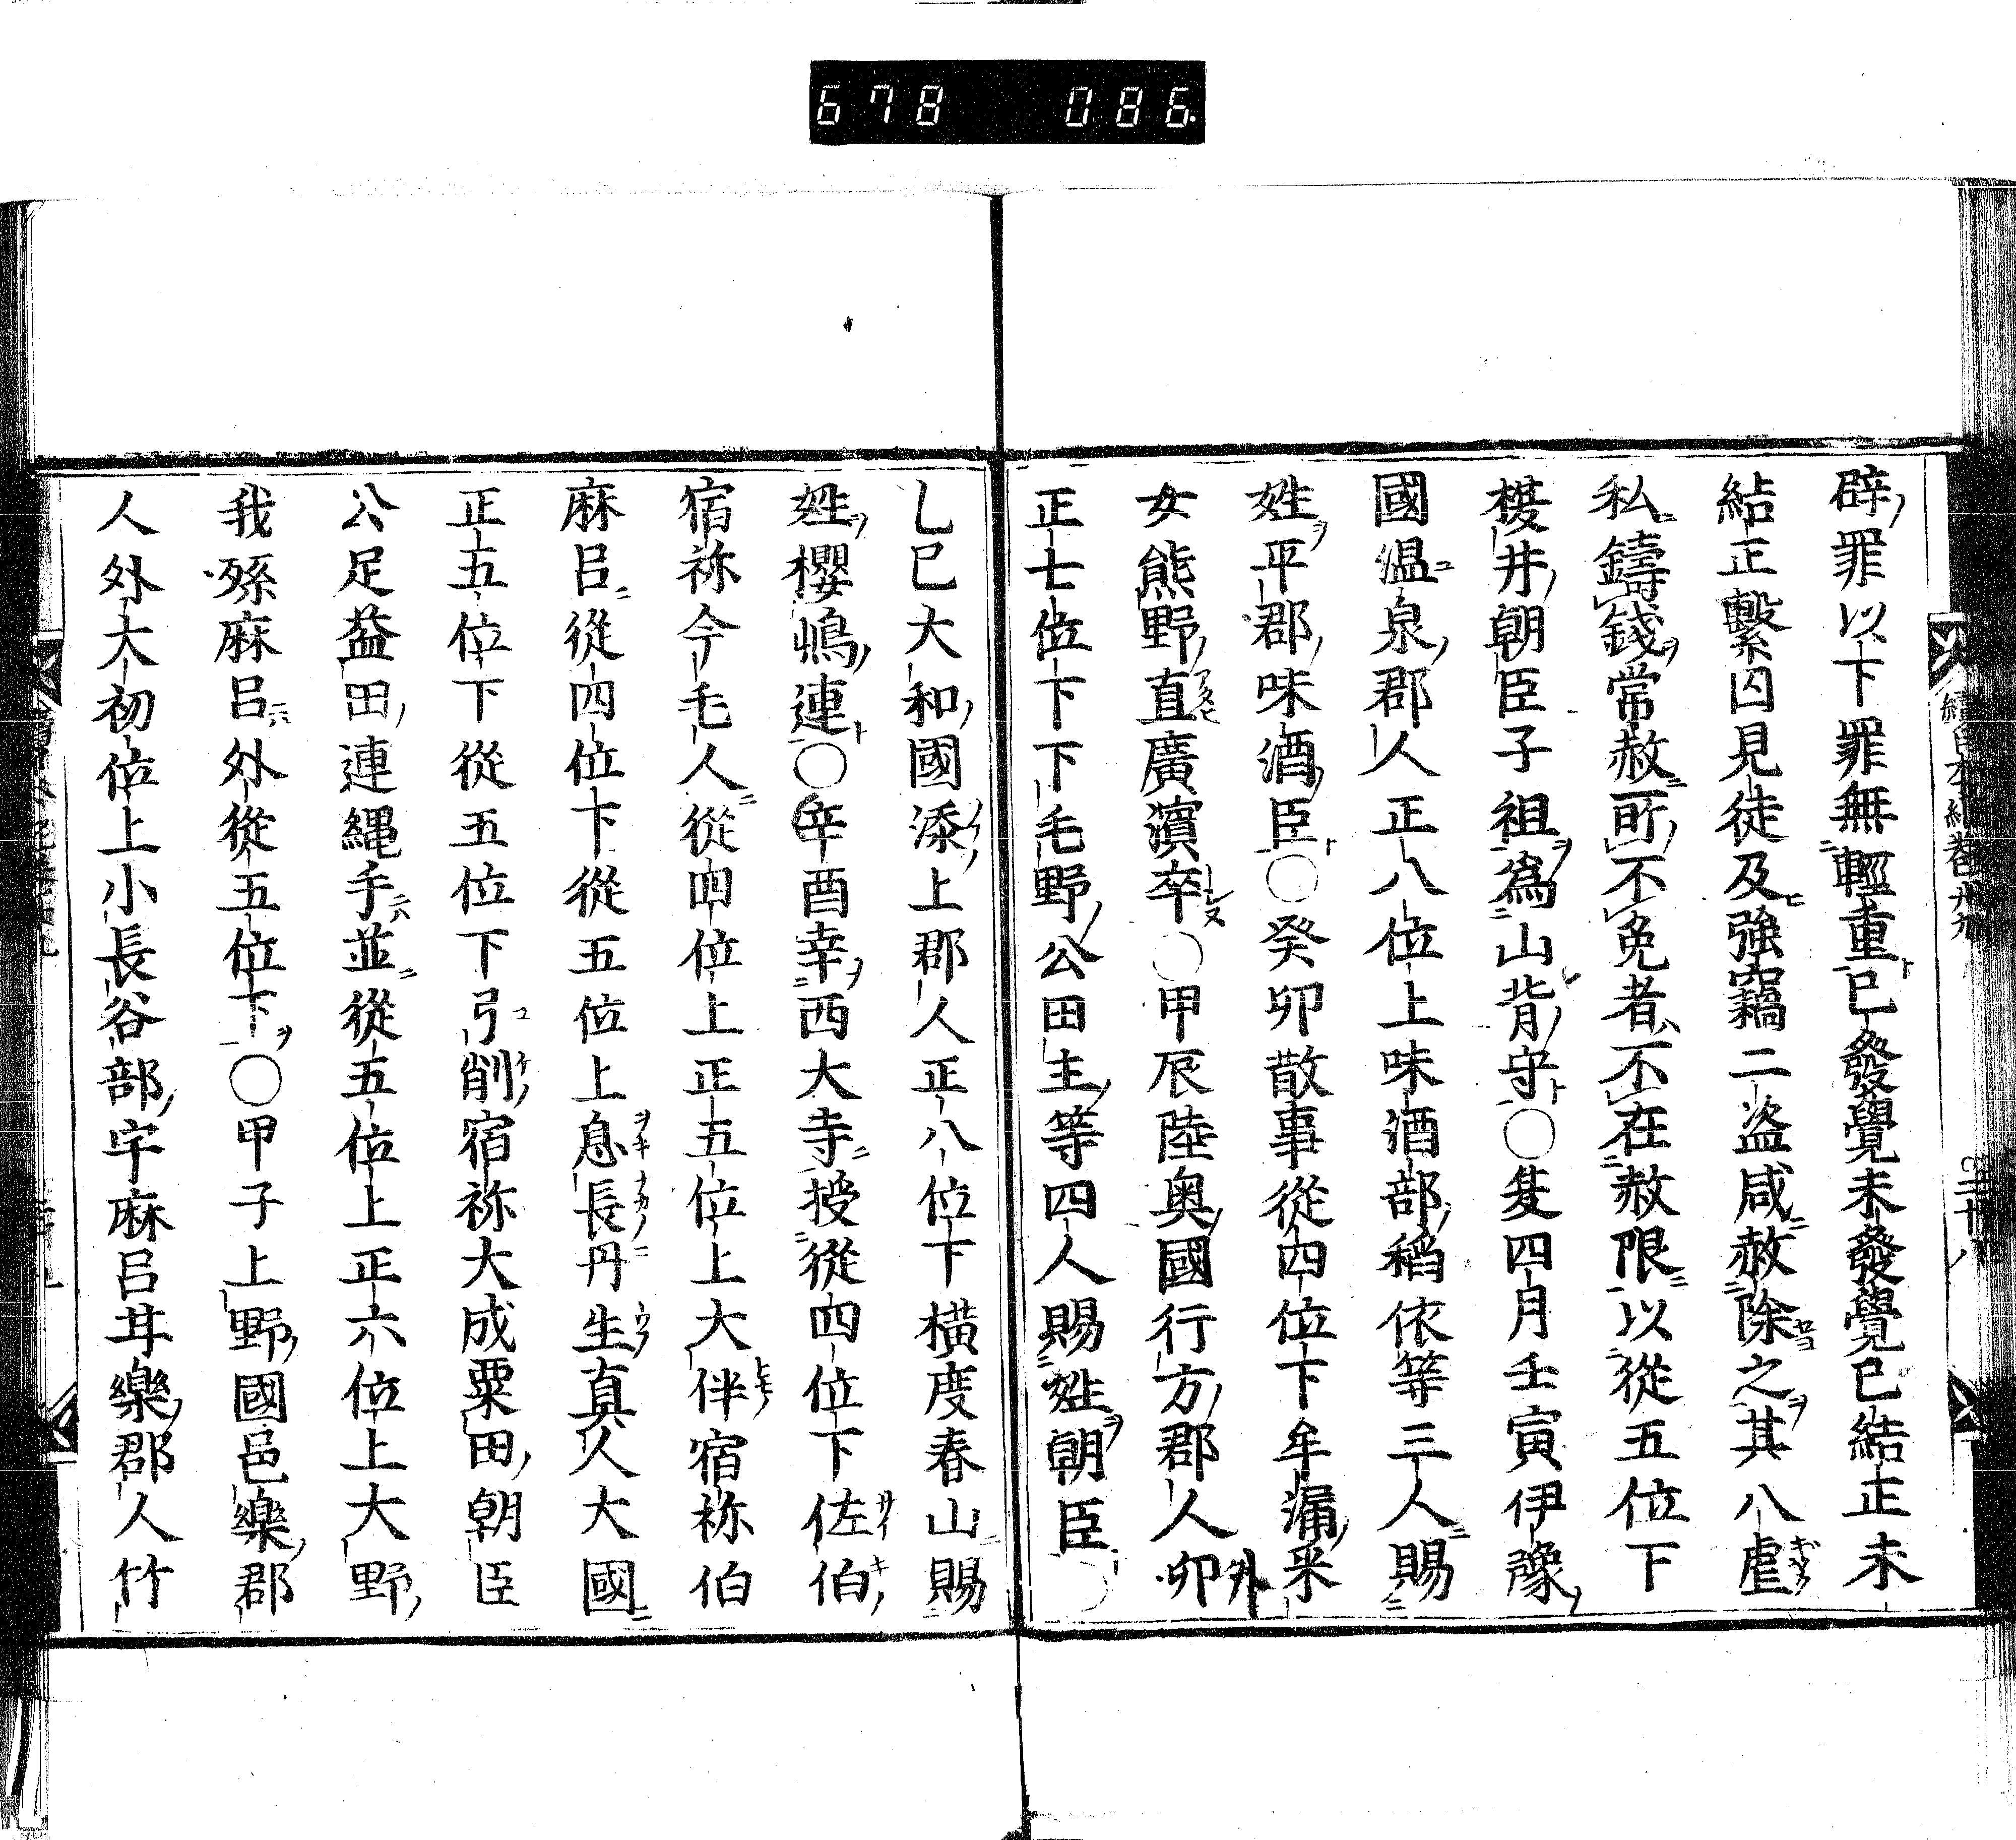 678 086
辟罪以下罪無輕重已發覺未發覺已結正未
結正繫囚見徒及強竊二盗咸赦除之其八虐
私鑄錢常赦所不免者不在赦限以從五位下
櫻井朝臣子祖爲山背守○夏四月壬寅伊豫
國温泉郡人正八位上味酒部稻依等三人賜
姓平郡味酒臣○癸卯散事從四位下牟漏采
女熊野直廣濱卒○甲辰陸奥國行方郡人外
正七位下下毛野公田主等四人賜姓朝臣○
乚巳大和國添上郡人正八位下横度春山賜
姓櫻嶋連○辛酉幸西大寺授從四位下佐伯
宿祢今毛人從四位上正五位上大伴宿祢伯
麻呂從四位下從五位上息長丹生真人大國
正五位下從五位下弓削宿祢大成粟田朝臣
公足益田連繩手並從五位上正六位上大野
我孫麻呂外從五位下○甲子上野國邑樂郡
人外大初位上小長谷部宇麻呂甘樂郡人竹
續日本紀卷廿九 二十八